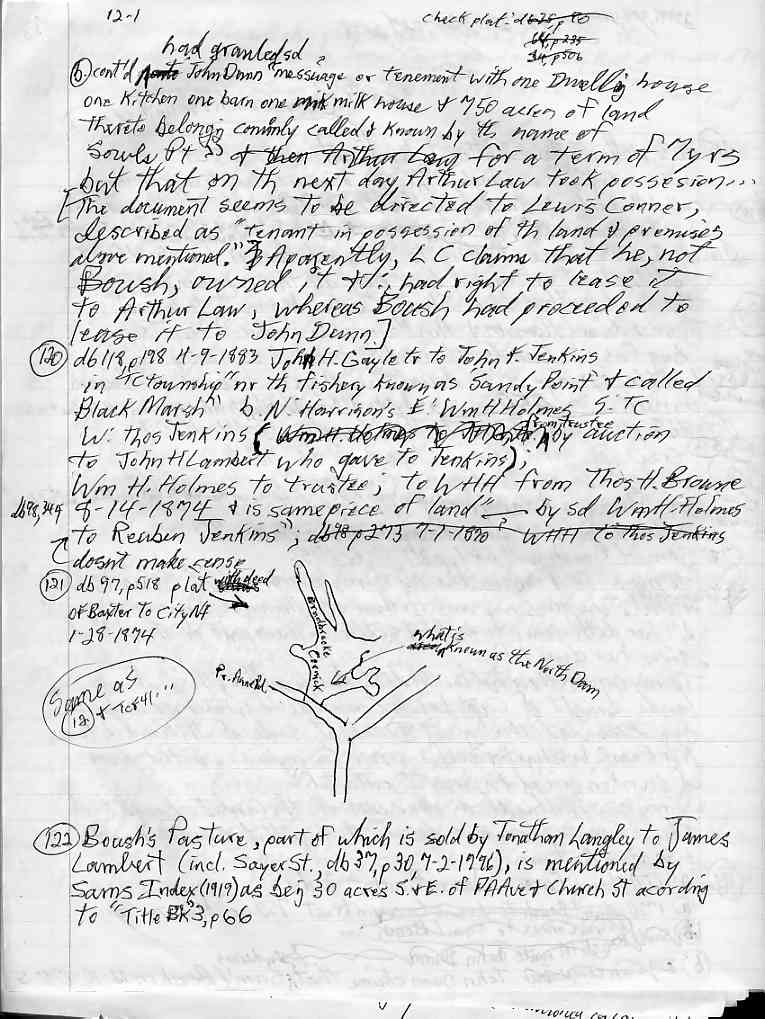 12-1
check plat: db 25, p 80
64, p 235
34, p 506
had granted sd
b. cont'd John Dunn "messuage or tenement with one Dwellig house
one Kitchen one barn one milk house & 750 acres of land
thereto belongin commnly called & known by th name of
Souls Pt" & then Arthur Long for a term of 7 yrs
but that on th next day Arthur Law took possesion...
[The document seems to be directed to Lewis Conner,
described as "tenant in possession of th land & premises
above mentioned." Aparently, LC claims that he, not
Boush, owned it & had right to lease it
to Arthur Law, whereas Boush had proceeded to
lease it to John Dunn.]
120 db 118, p198 4-9-1883 John H. Gayle tr to John F. Jenkins
in "T C township" nr th fishery known as Sandy Point & called
Black Marsh" b. N: Harrison's E: Wm H Holmes S: TC
W: Thos Jenkins (Wm H. Holmes to from trustee by auction
to John H Lambert who gave to Jenkins);
Wm H. Holmes to trustee; to WHH from Thos H. Browne
db98, 349 8-14-1874 & is same piece of land" — by sd Wm H. Holmes
to Reuben Jenkins"; db 98 p 273 7-1-1870? WHH to Thos Jenkins
doesn't make sense
121 db 97, p518 plat with deed
of Baxter to City Nf
1-28-1874
Bradbrooke
Cornick
what is
known as the North Dam
Pr. Anne Rd.
Same as
12 &
122 Boush's Pasture, part of which is sold by Jonathan Langley to James
Lambert (incl. Sayer St., db 37, p30, 7-2-1796), is mentioned by
Sams Index (1919) as beig 30 acres S. & E. of PA Ave & Church St acording
to "Title BK 3, p66